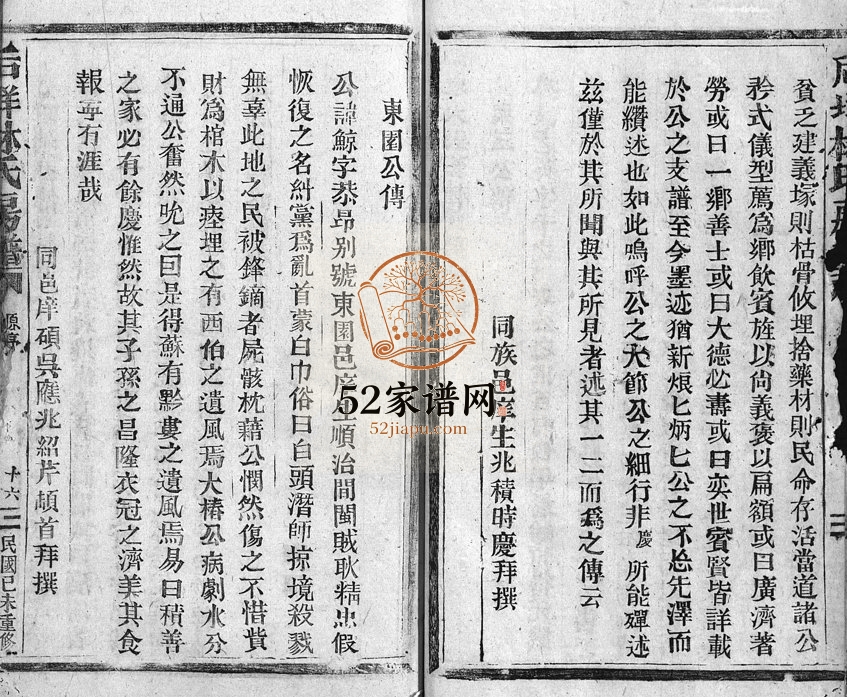 貧乏建義塚則枯骨攸埋捨藥材則民命存活當道諸公
矜式儀型薦為鄉飲賓旌以尚義褒以扁額或曰廣濟著
勞或曰一鄉善士或曰大德必壽或曰奕世賓賢皆詳載
於公之支譜至今墨迹猶新烺匕炳匕公之不忝先澤而
能纘述也如此嗚呼公之大節公之細行非慶所能殫述
茲僅於其所聞與其所見者述其一二而爲之傳云
同族邑庠生兆積時慶拜撰
東園公傳
公諱鯨字恭昂別號東園邑庠生順治間閩賊耿精忠假
恢復之名糾黨爲亂首蒙白巾俗曰白頭潛師掠境殺戮
無辜此地之民被鋒鏑者屍骸枕藉公憫然傷之不惜貲
財爲棺木以瘞埋之有西伯之遺風焉大椿公病劇水分
不通公奮然吮之囙是得蘇有黔婁之遺風焉易曰積善
之家必有餘慶惟然故其子孫之昌隆衣冠之濟美其食
報寧有涯哉
同邑庠碩吳應兆紹芹頓首拜撰
后垟林氏房譜
原序
十六
民國己未重修
52家谱网
52jiapu.com